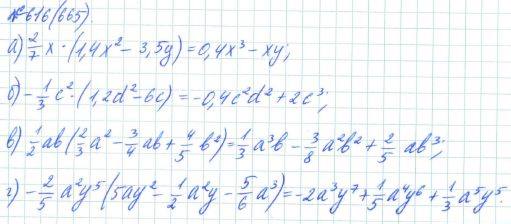 №616(665).
а) 2/7 x · (1,4x² − 3,5y) = 0,4x³ − xy;
б) −1/3 c² · (1,2d² − 6c) = −0,4c²d² + 2c³;
в) 1/2 ab (2/3 a² − 3/4 ab + 4/5 b²) = 1/3 a³b − 3/8 a²b² + 2/5 ab³;
г) −2/5 a²y⁵ (5ay² − 1/2 a²y − 5/6 a³) = −2a³y⁷ + 1/5 a⁴y⁶ + 1/3 a⁵y⁵.